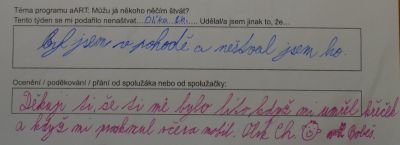 Téma programu aART: Můžu já někoho něčím štvát?
Tento týden se mi podařilo nenaštvat.... Olíka Ch.... Udělal/a jsem jinak to, že...
byl jsem v pohodě a neštval jsem ho.
Ocenění / poděkování / přání od spolužáka nebo od spolužačky:
Děkuji ti že ti mě bylo líto když mi umřel křeček
a když mi prohrál včera mobil. Olík Ch